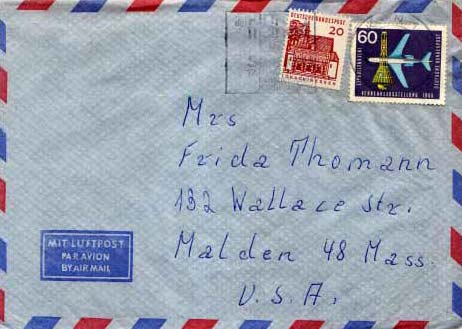 DEUTSCHE BUNDESPOST
20
LORSCH HESSEN
60
INTERNATIONALE
VERKEHRSAUSSTELLUNG 1965
DEUTSCHE BUNDESPOST
Mrs
Frida Thomann
132 Wallace Str.
Malden 48 Mass.
U.S.A.
MIT LUFTPOST
PAR AVION
BY AIR MAIL